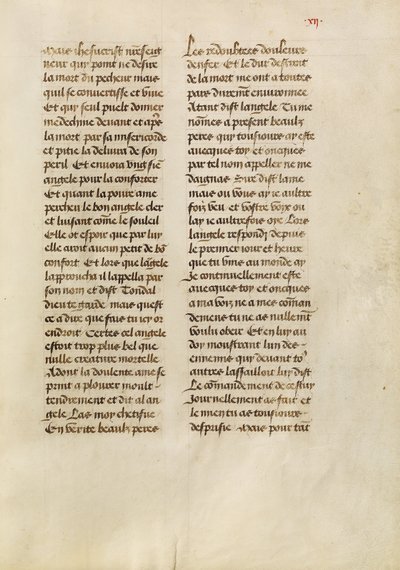 ·xij·
Mais ihesucrist nr̄eseig
neur quy point ne desire
la mort du pecheur mais
quil se conuertisse et viue
Et quy seul puelt donner
medecine deuant et apr̄s
la mort par sa misericorde
et pitie la deliura de son
peril Et enuoia vng sien
angele pour la conforter
Et quant la poure ame
percheu le bon angele cler
et luisant com̄e le souleil
Elle ot espoir que par luy
elle auroit aucun petit de bō
confort Et lors que lāgele
lapproucha il lappella par
son nom et dist Tondal
dieu te garde mais quest
ce a dire que fais tu icy or
endroit Certes cel angele
estoit trop plus bel que
nulle creature mortelle
Adont la doulente ame se
prinst a plourer moult
tendrement et dit al an-
gele Las moy chetifue
En verite beaulz peres
Les redoubtees douleurs
denfer Et le dur destroit
de la mort me ont a toutes
pars durem̄t enuironnee
Atant dist langele Tu me
nom̄es a present beaulz
peres quy tousiours ay este
auecques toy et oncques
par tel nom appeller ne me
daignas Sire dist lame
mais ou vous ay ie aultre
fois veu et vostre voix ou
lay ie aultrefois oye Lors
langele respondj depuis
le premier iour et heure
que tu vins au monde ay
Je continuellement este
auecques toy et oncques
a ma voix ne a mes com̄an
demens tu ne as nullem̄t
voulu obeir Et en luy au
doy moustrant lun des
ennemis quy deuant to9
autres lassailloit luy dist
Le com̄andement de cestuy
Journellement as fait et
le mien tu as tousiours
desprisie Mais pour tāt